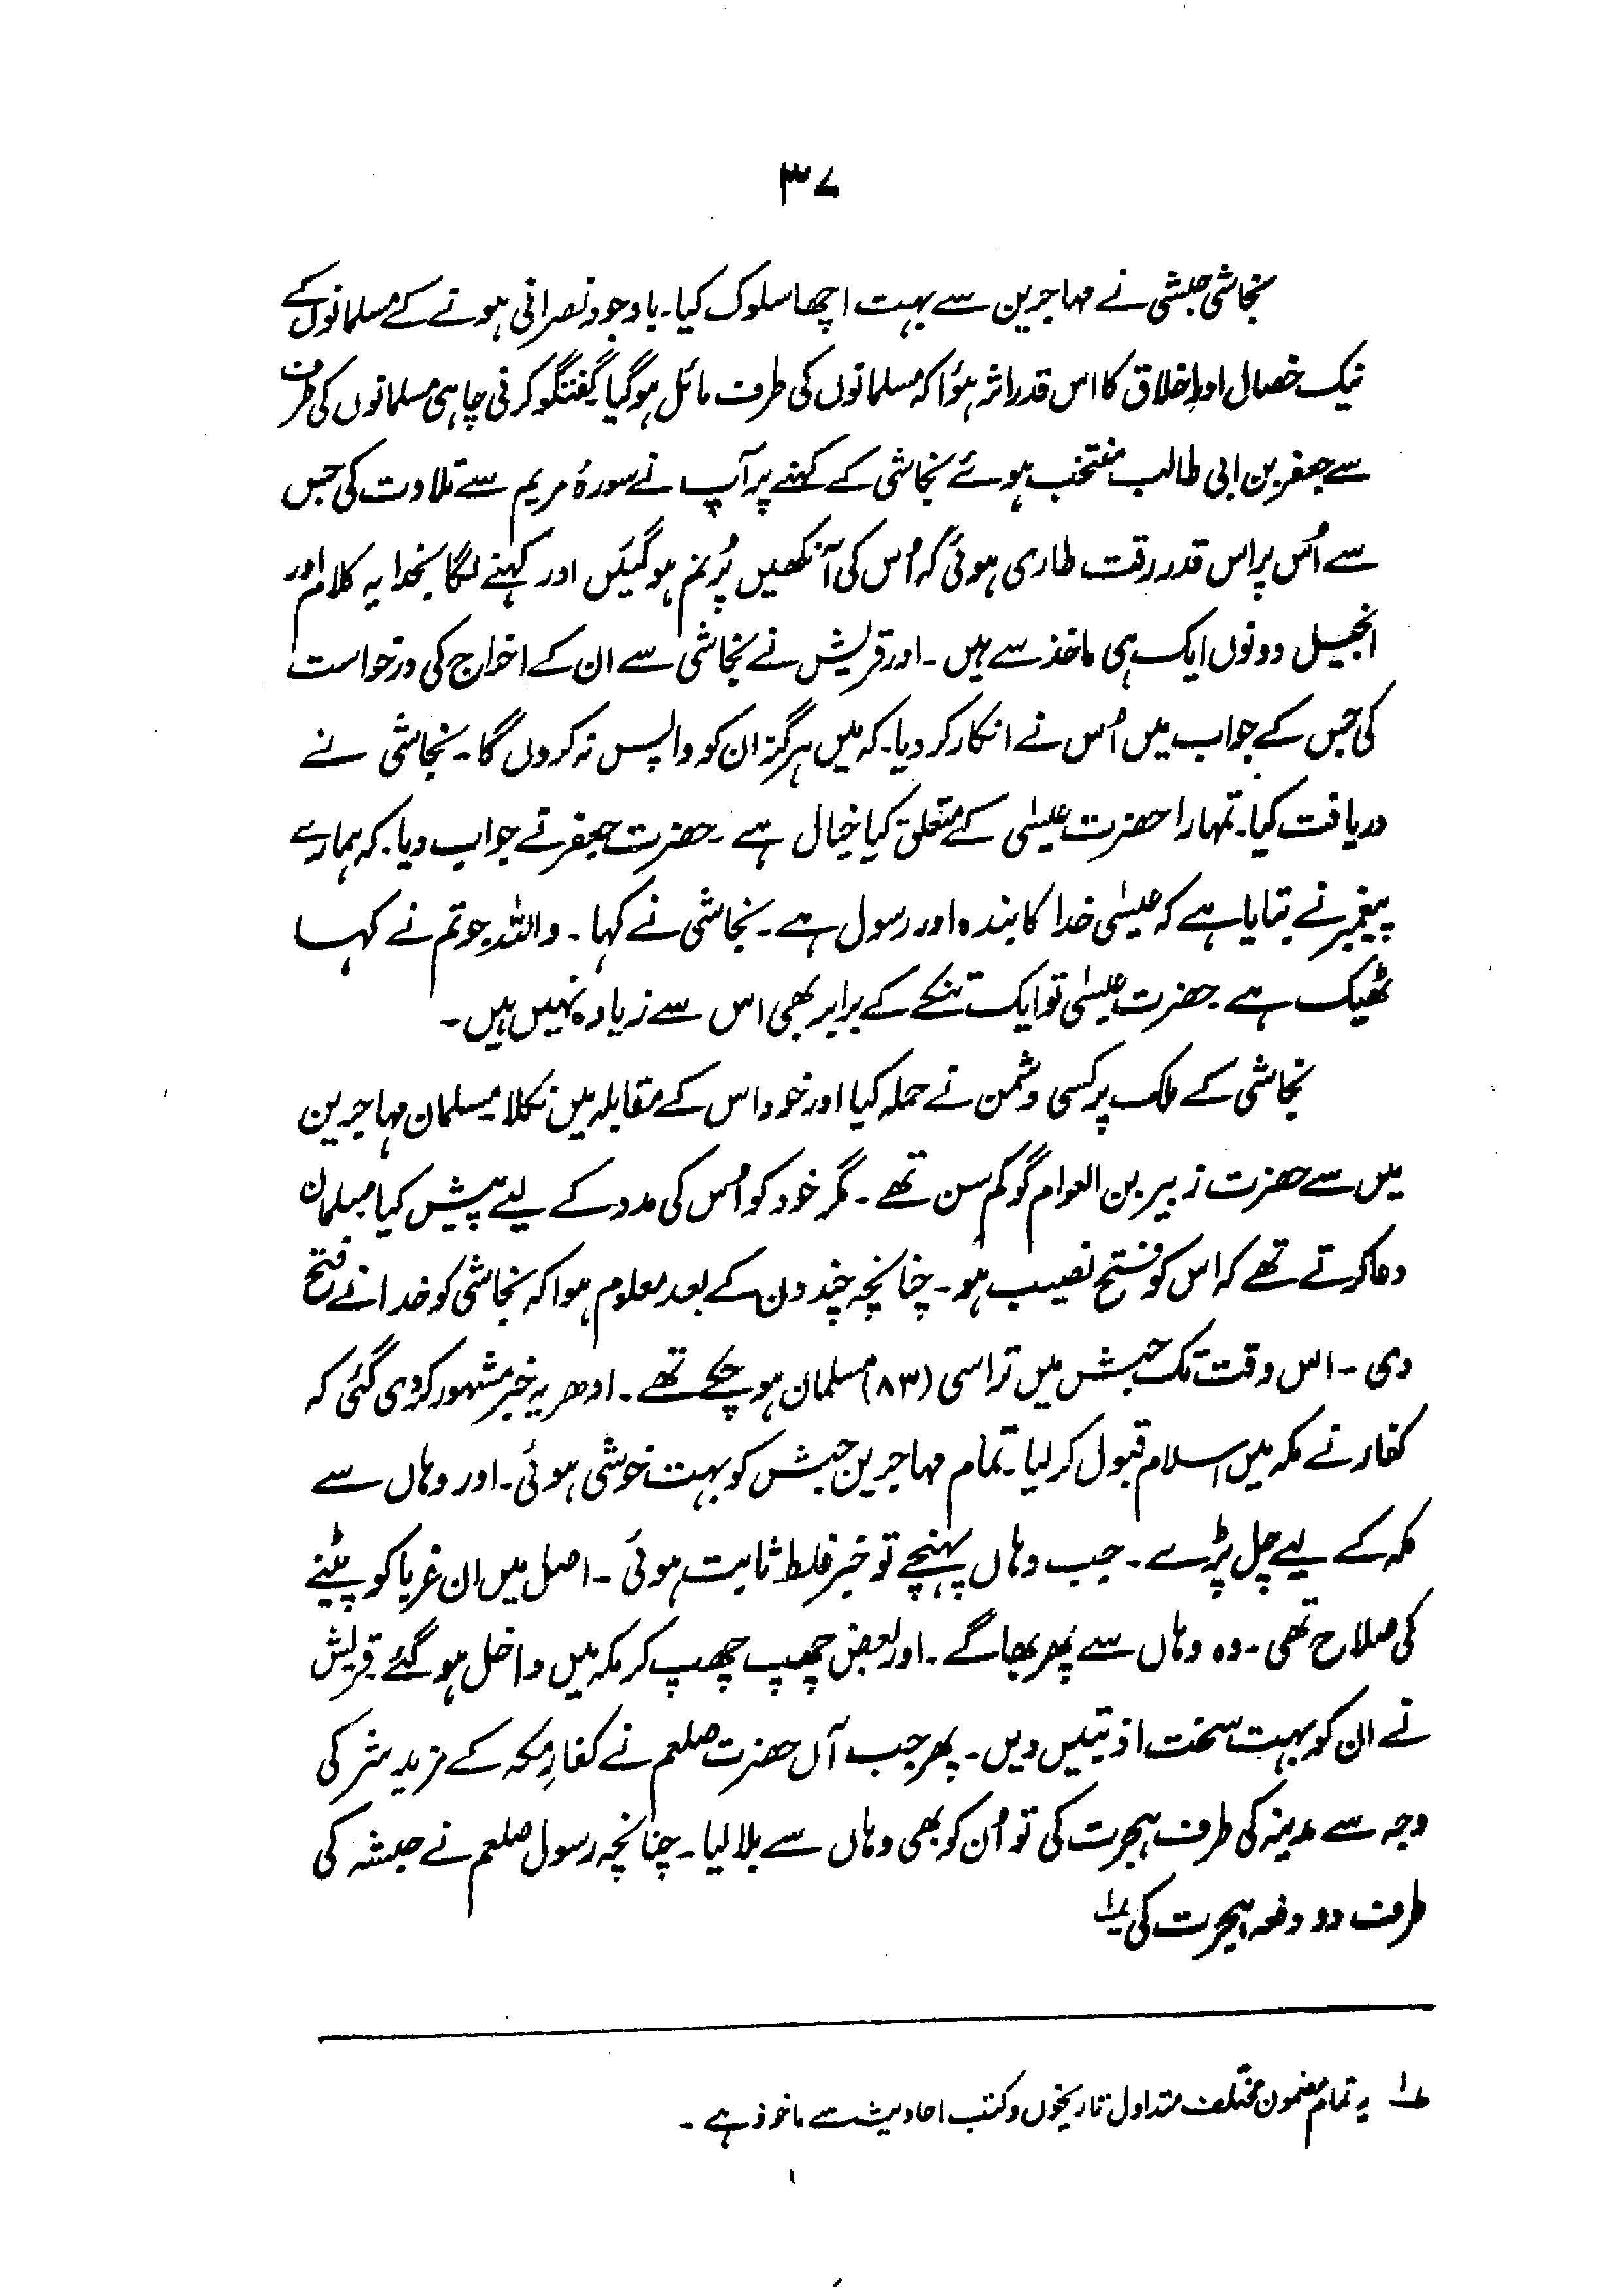 ۳۷
نجاشی حبشی نے مہاجرین سے بہت اچھا سلوک کیا۔ باوجود نصرانی ہونے کے مسلمانوں کے
نیک خصال اور اخلاق کا اس قدر اثر ہؤا کہ مسلمانوں کی طرف مائل ہو گیا۔ گفتگو کرنی چاہی مسلمانوں کی طرف
سے جعفر بن ابی طالب منتخب ہوئے نجاشی کے کہنے پر آپ نے سورۂ مریم سے تلاوت کی جس
سے اُس پر اس قدر رقت طاری ہوئی کہ اُس کی آنکھیں پُرنم ہو گئیں اور کہنے لگا بخدا یہ کلام اور
انجیل دونوں ایک ہی ماخذ سے ہیں۔ اور قریش نے نجاشی سے ان کے اخراج کی درخواست
کی جس کے جواب میں اُس نے انکار کر دیا۔ کہ میں ہرگز ان کو واپس نہ کروں گا۔ نجاشی نے
دریافت کیا۔ تمہارا حضرت عیسٰی کے متعلق کیا خیال ہے۔ حضرت جعفر نے جواب دیا۔ کہ ہمارے
پیغمبر نے بتایا ہے کہ عیسٰی خدا کا بندہ اور رسول ہے۔ نجاشی نے کہا۔ واللہ جو تم نے کہا
ٹھیک ہے حضرت عیسٰی تو ایک تنکے کے برابر بھی اس سے زیادہ نہیں ہیں۔
نجاشی کے ملک پر کسی دشمن نے حملہ کیا اور خود اس کے مقابلہ میں نکلا مسلمان مہاجرین
میں سے حضرت زبیر بن العوام گو کم سن تھے۔ مگر خود کو اُس کی مدد کے لیے پیش کیا مسلمان
دعا کرتے تھے کہ اس کو فتح نصیب ہو۔ چنانچہ چند دن کے بعد معلوم ہوا کہ نجاشی کو خدا نے فتح
دی۔ اس وقت تک حبش میں تراسی (۸۳) مسلمان ہو چکے تھے۔ ادھر یہ خبر مشہور کر دی گئی کہ
کفار نے مکہ میں اسلام قبول کر لیا۔ تمام مہاجرین حبش کو بہت خوشی ہوئی۔ اور وہاں سے
مکہ کے لیے چل پڑے۔ جب وہاں پہنچے تو خبر غلط ثابت ہوئی۔ اصل میں ان غربا کو پیٹنے
کی صلاح تھی۔ وہ وہاں سے پھر بھاگے۔ اور بعض چھپ چھپ کر مکہ میں داخل ہو گئے قریش
نے ان کو بہت سخت اذیتیں دیں۔ پھر جب آں حضرت صلعم نے کفارِ مکہ کے مزید شر کی
وجہ سے مدینہ کی طرف ہجرت کی تو اُن کو بھی وہاں سے بلا لیا۔ چنانچہ رسول صلعم نے حبشہ کی
طرف دو دفعہ ہجرت کی ۱؎
۱؎ یہ تمام مضمون مختلف متداول تاریخوں و کتب احادیث سے ماخوذ ہے۔